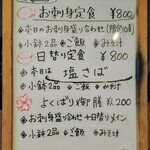 お刺身定食 ¥800
・本日のお刺身盛り合わせ
・小鉢2品 ・ご飯 ・みそ汁
日替り定食 ¥800
本日は 塩さば
小鉢2品 ・ご飯 ・みそ汁
よくばり御膳 ¥1,200
・お刺身盛り合わせ ・日替りメイン
・小鉢2品 ・ご飯 ・みそ汁